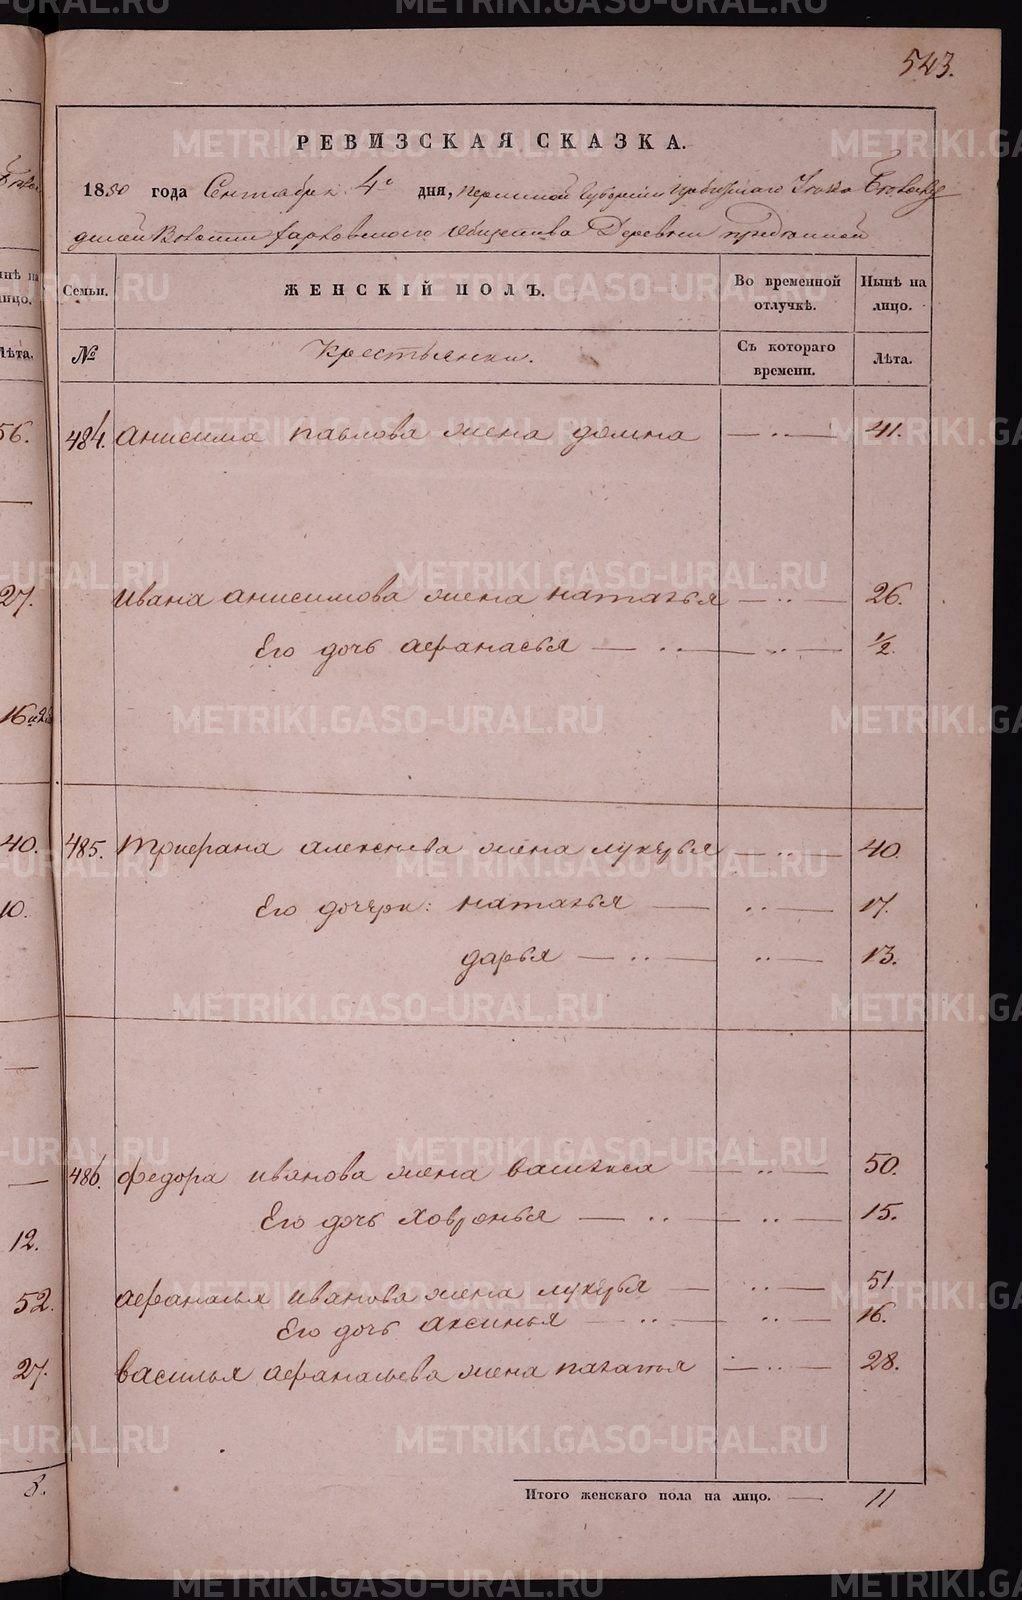 543.
РЕВИЗСКАЯ СКАЗКА.
1850 года Сентября 4го дня, Пермской Губернии Ирбитскаго Уезда
Волости Харловскаго общества Деревни
Семьи.
ЖЕНСКІЙ ПОЛЪ.
Во временной отлучкѣ.
Нынѣ на лицо.
№
Крестьянки.
Съ котораго времени.
Лѣта.
484. Анисима павлова жена домна — 41.
Ивана анисимова жена наталья — 26.
Его дочь афанасья — 1/2.
485. трифана алексѣева жена лукерья — 40.
Его дочери: наталья — 17.
дарья — 13.
486. федора иванова жена василиса — 50.
Его дочь Ховронья — 15.
афанасья иванова жена лукерья — 51
Его дочь аксинья — 16.
василья афанасьева жена — 28.
Итого женскаго пола на лицо. — 11
56.
27.
16
40.
10.
12.
52.
27.
8.
нынѣ на
лицо.
Лѣта.
METRIKI.GASO-URAL.RU